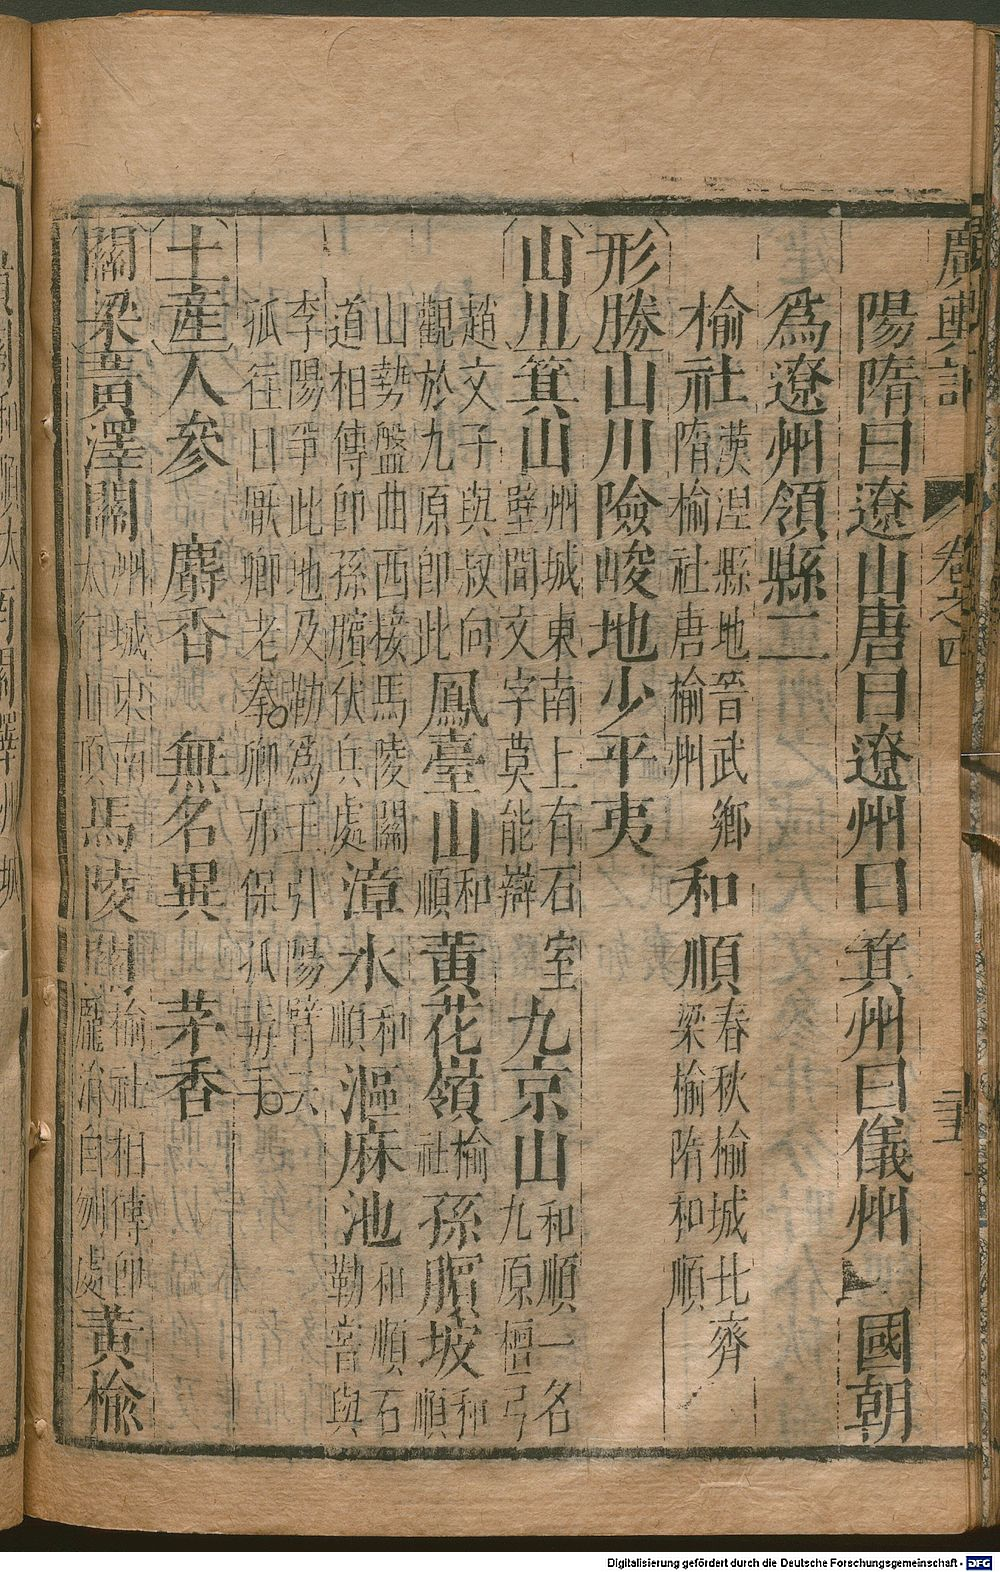 廣輿記 卷之四
陽隋曰遼山唐曰遼州曰箕州曰儀州 國朝
爲遼州領縣二
榆社漢涅縣地晉武鄉
隋榆社唐榆州 和順春秋榆城北齊
梁榆隋和順
形勝山川險峻地少平夷
山川箕山州城東南上有石室
壁間文字莫能辯 九京山和順一名
九原檀弓
趙文子與叔向
觀於九原即此 鳳臺山和
順 黃花嶺榆
社 孫臏坡和
順
山勢盤曲西接馬陵關
道相傳即孫臏伏兵處 漳水和
順 漚麻池和順石
勒嘗與
李陽爭此地及勒爲王引陽臂大
孤往日厭卿老拳卿亦保孤毒手
土產人參 麝香 無名異 茅香
關梁黃澤關州城東南
太行山頂 馬陵關榆社相傳即
龐涓自刎處 黃榆
Digitalisierung gefördert durch die Deutsche Forschungsgemeinschaft - DFG